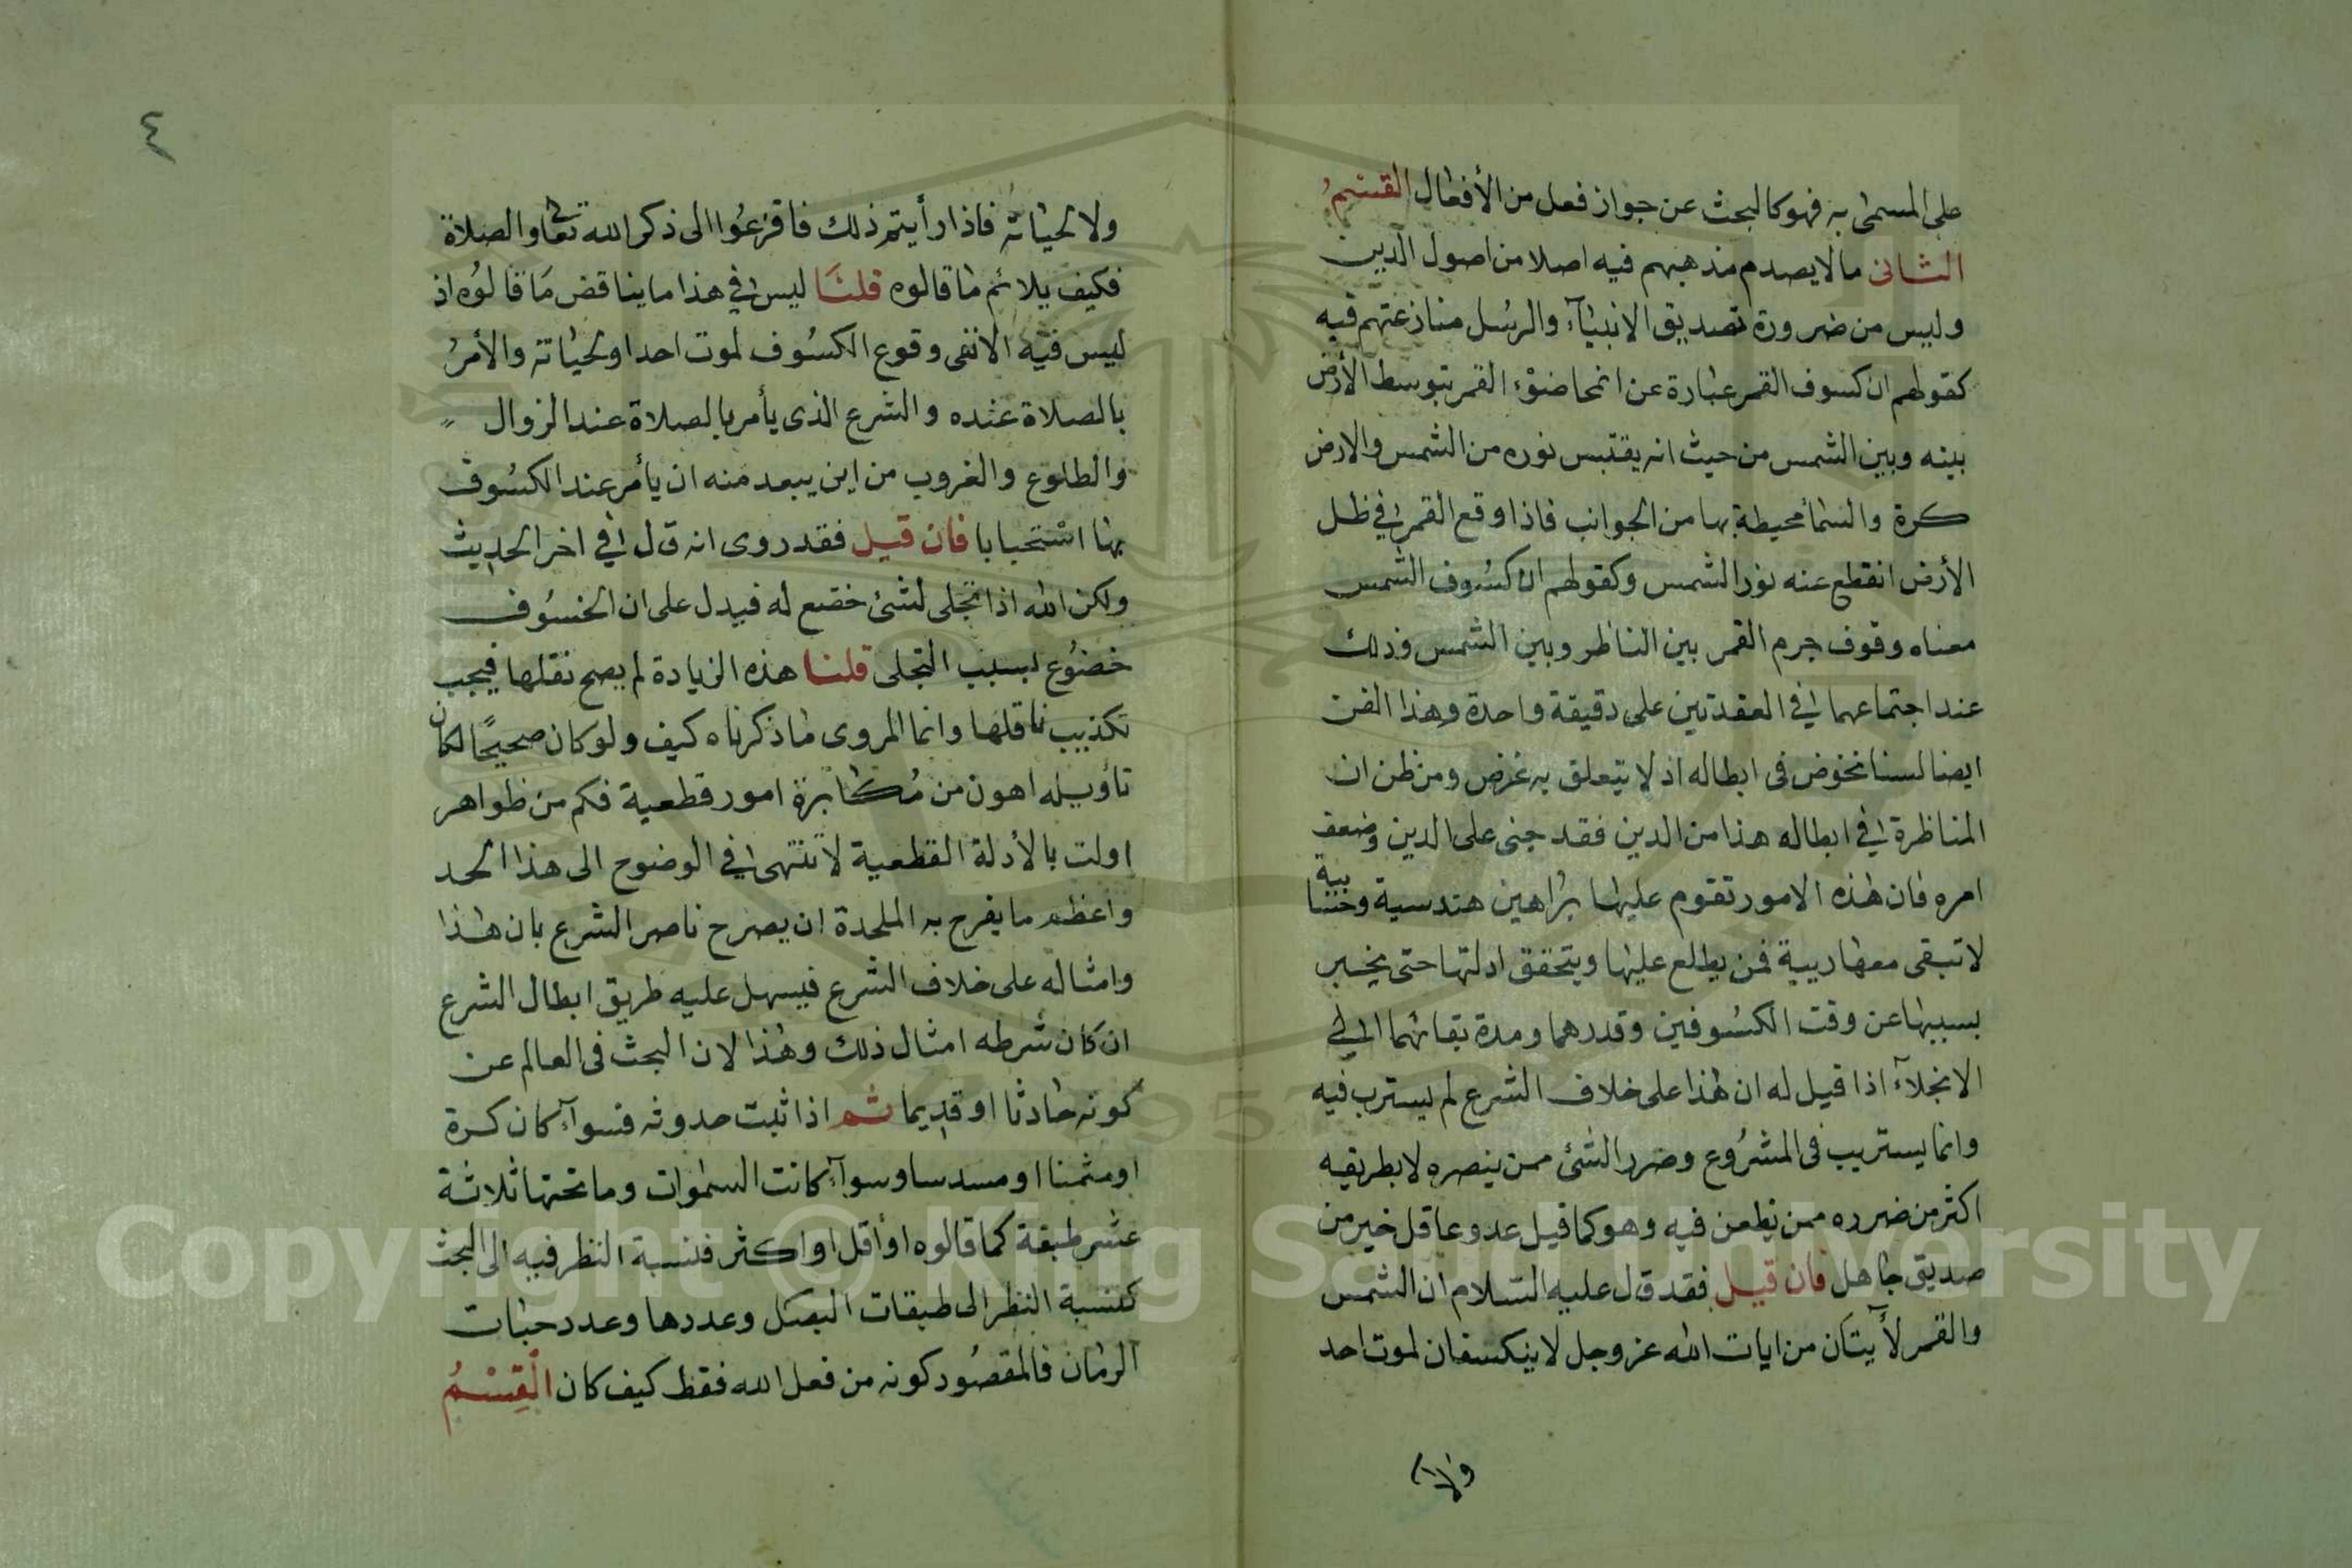 على المسمى به فهو كالبحث عن جواز فعل من الأفعال القسم
الثانى مالا يصدم مذهبهم فيه اصلا من اصول الدين
وليس من ضرورة تصديق الانبيآء والرسل منازعتهم فيه
كقولهم ان كسوف القمر عبارة عن انمحا ضوء القمر بتوسط الأرض
بينه وبين الشمس من حيث انه يقتبس نوره من الشمس والارض
كرة والسمأ محيطة بها من الجوانب فاذا وقع القمر في ظل
الأرض انقطع عنه نور الشمس وكقولهم ان كسوف الشمس
معناه وقوف جرم القمر بين الناظر وبين الشمس وذلك
عند اجتماعهما في العقدتين على دقيقة واحدة وهذا الفن
ايضا لسنا نخوض فى ابطاله اذ لا يتعلق به غرض ومن ظن ان
المناظرة في ابطاله هذا من الدين فقد جنى على الدين وضعف
امره فان هذه الامور تقوم عليها براهين هندسية وحسابية
لا تبقى معها ريبية فمن يطلع عليها ويتحقق ادلتها حتى يخبر
بسببها عن وقت الكسوفين وقدرهما ومدة بقائهما الى
الانجلآء اذا قيل له ان هذا على خلاف الشرع لم يسترب فيه
وانما يستريب فى المشروع وضرر الشئ ممن ينصره لا بطريقيه
اكثر من ضرره ممن يطعن فيه وهو كما قيل عدو عاقل خير من
صديق جاهل فان قيل فقد قال عليه السلام ان الشمس
والقمر لأيتان من ايات الله عز وجل لا ينكسفان لموت احد
ولا
٤
ولا لحياته فاذا رأيتم ذلك فافزعوا الى ذكر الله تعالى والصلاة
فكيف يلائم ما قالوه قلنا ليس في هذا ما يناقض ما قالوه اذ
ليس فيه الا نفى وقوع الكسوف لموت احد او لحياته والأمر
بالصلاة عنده والشرع الذى يأمر بالصلاة عند الزوال
والطلوع والغروب من اين يبعد منه ان يأمر عند الكسوف
بها استحبابا فان قيل فقد روى انه قال في اخر الحديث
ولكن الله اذا تجلى لشئ خضع له فيدل على ان الخسوف
خضوع لسبب التجلى قلنا هذه الزيادة لم يصح نقلها فيجب
تكذيب ناقلها وانما المروى ما ذكرناه كيف ولو كان صحيحًا لكان
تاويله اهون من مكابرة امور قطعية فكم من ظواهر
اولت بالأدلة القطعية لا تنتهى في الوضوح الى هذا الحد
واعظم ما يفرح به الملحدة ان يصرح ناصر الشرع بان هذا
وامثاله على خلاف الشرع فيسهل عليه طريق ابطال الشرع
ان كان شرطه امثال ذلك وهذا لان البحث فى العالم عن
كونه حادثا او قديما ثم اذا ثبت حدوثه فسوآء كان كرة
او مثمنا او مسدسا وسوآء كانت السموات وما تحتها ثلاثة
عشر طبقة كما قالوه او أقل او اكثر فنسبة النظر فيه الى البحث
كنسبة النظر الى طبقات البصل وعددها وعدد حبات
الرمان فالمقصود كونه من فعل الله فقط كيف كان القسم
Copyright © King Saud University